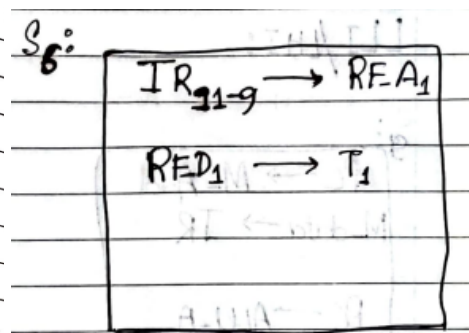 S6:
IR11-9 → RF_A1
RF_D1 → T1